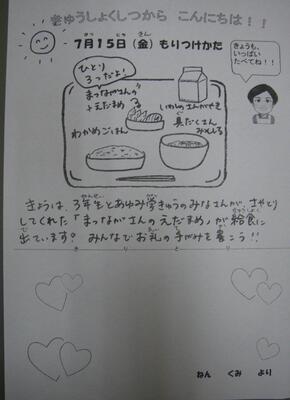 きゅうしょくしつから こんにちは!!
7月15日(金)もりつけかた
きょうも、
いっぱい
たべてね!!
ひとり
3つだよ!
まつながさんの
えだまめ
いわしのさんがやき
わかめごはん
具だくさん
みそしる
きょうは、3年生とあゆみ学きゅうのみなさんが、さやとり
してくれた「まつながさんのえだまめ」が給食に
出ています。みんなでお礼の手がみを書こう!!
きりとり
ねん くみ より